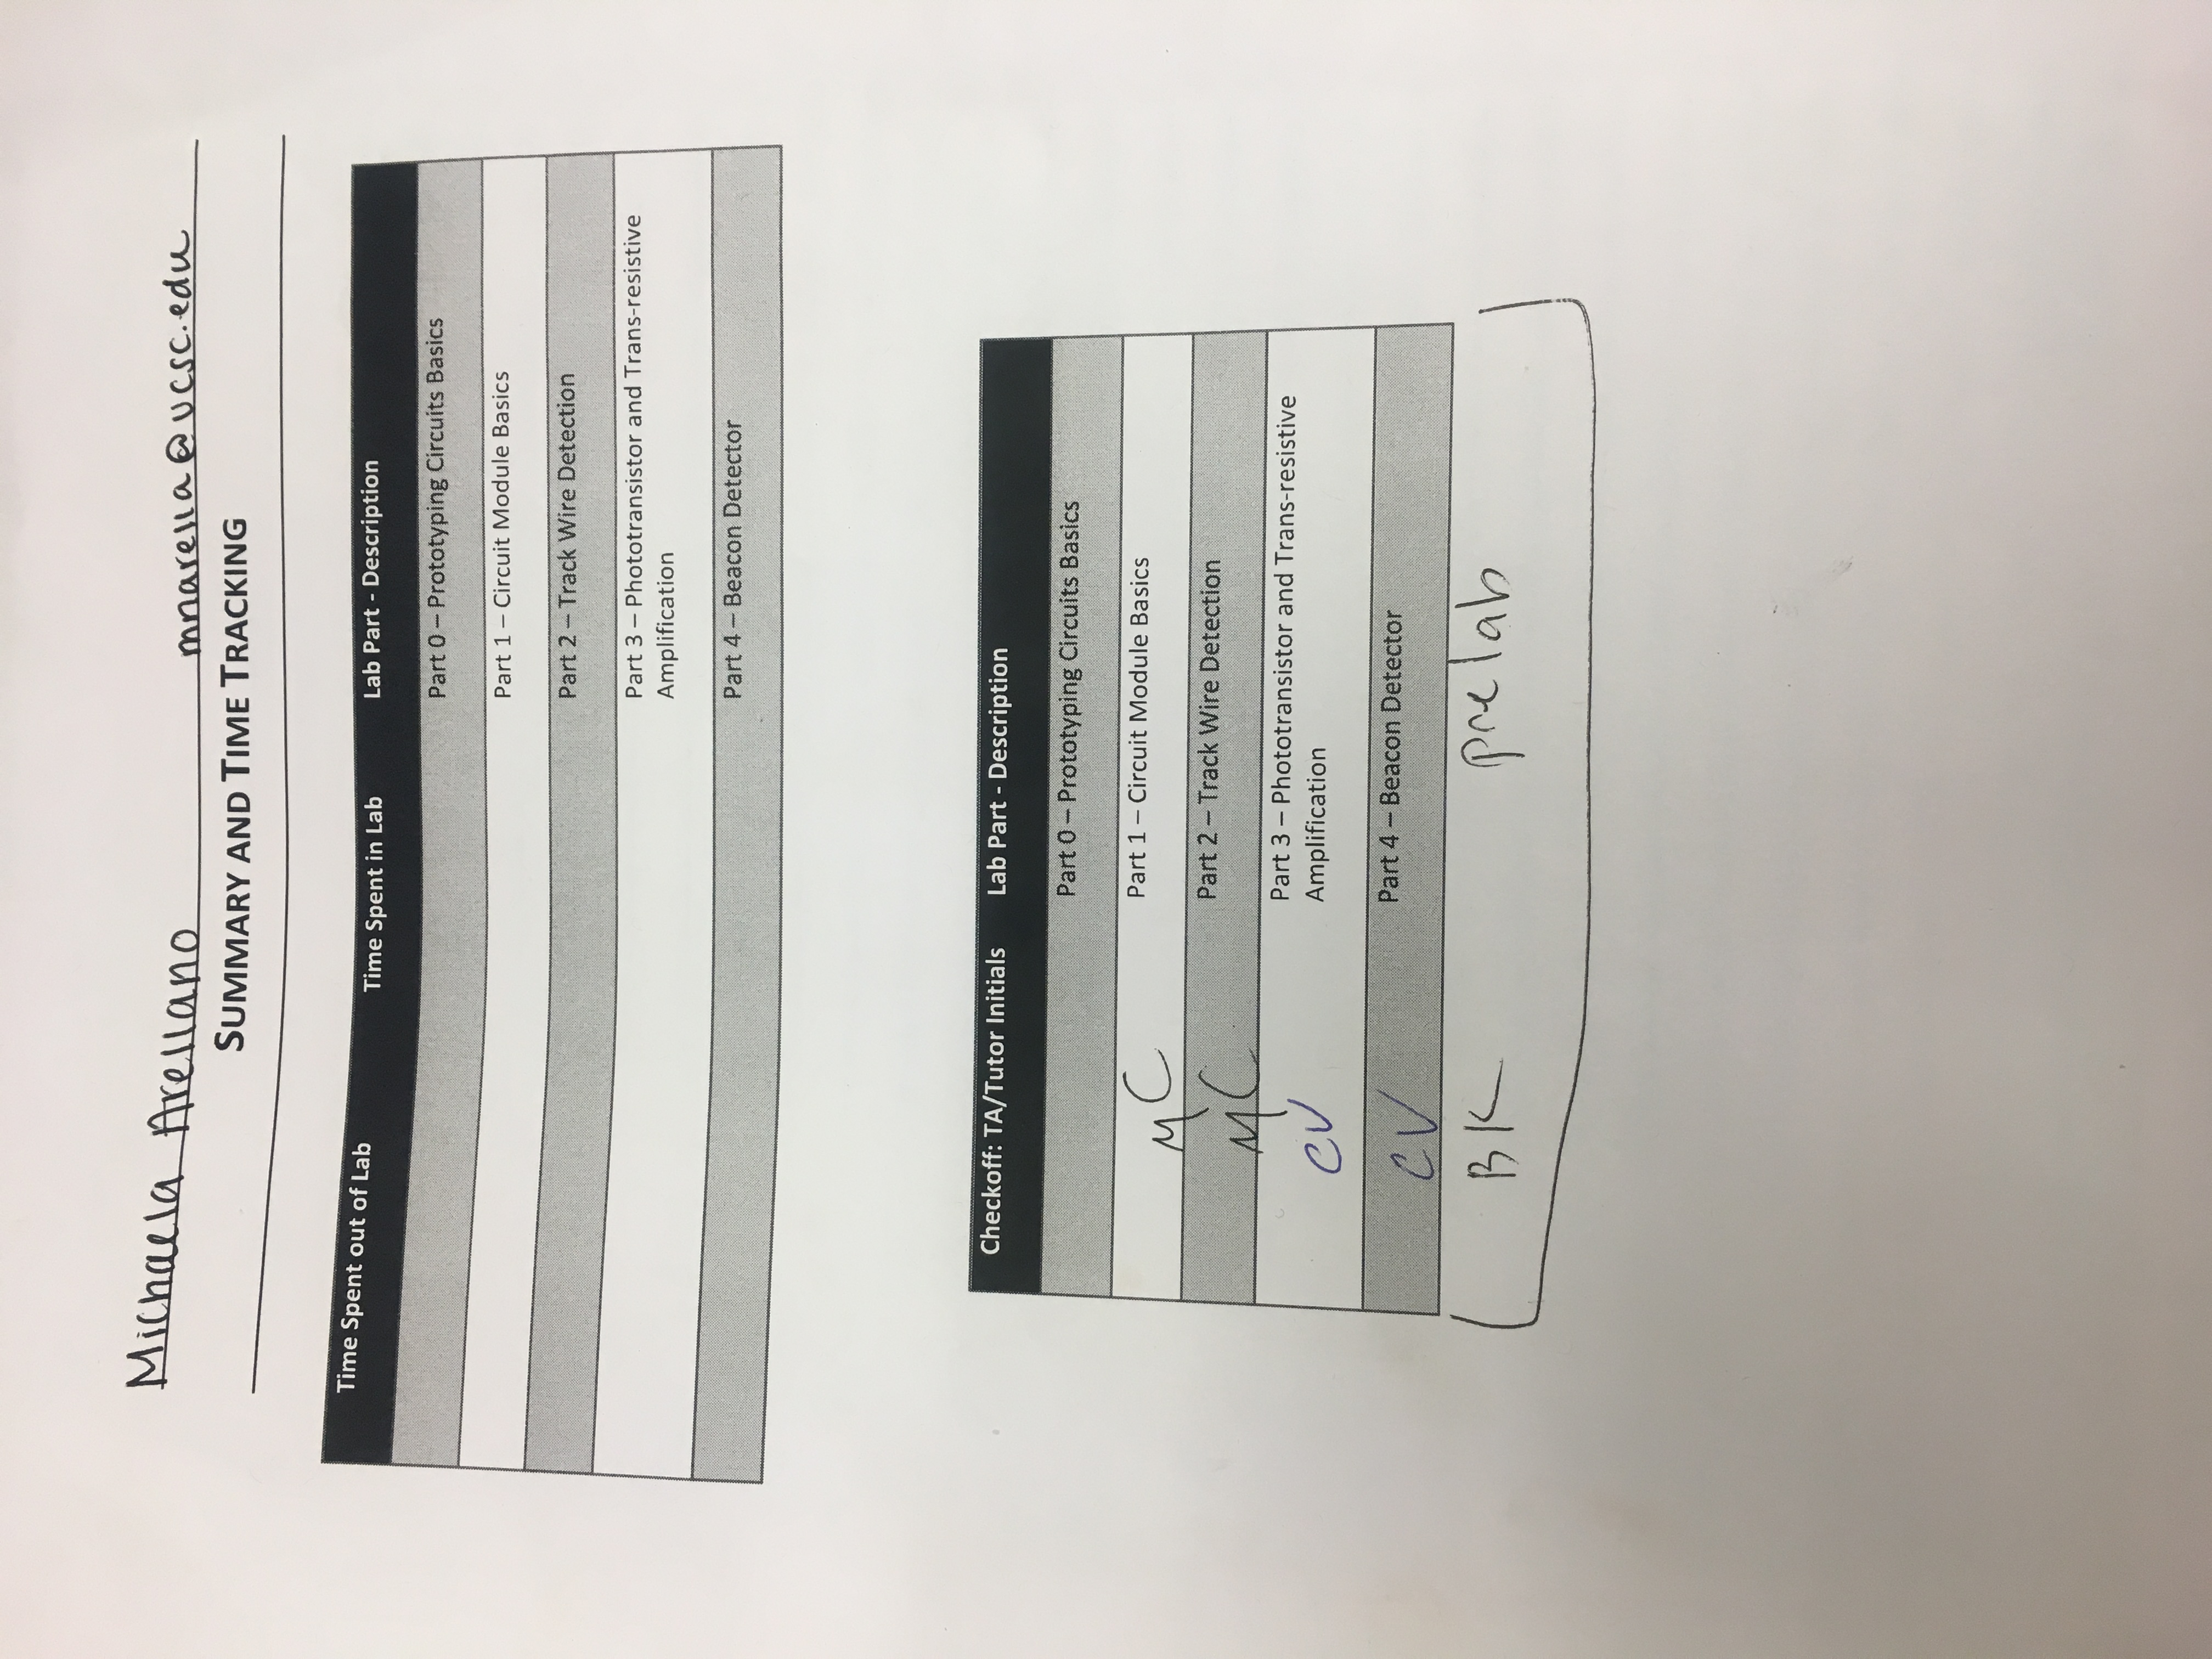 Michaela Arellano mnarella@ucsc.edu
SUMMARY AND TIME TRACKING
Time Spent out of Lab Time Spent in Lab Lab Part - Description
Part 0 – Prototyping Circuits Basics
Part 1 – Circuit Module Basics
Part 2 – Track Wire Detection
Part 3 – Phototransistor and Trans-resistive
Amplification
Part 4 – Beacon Detector
Checkoff: TA/Tutor Initials Lab Part - Description
Part 0 – Prototyping Circuits Basics
MC Part 1 – Circuit Module Basics
MC Part 2 – Track Wire Detection
CV Part 3 – Phototransistor and Trans-resistive
Amplification
CV Part 4 – Beacon Detector
BK prelab